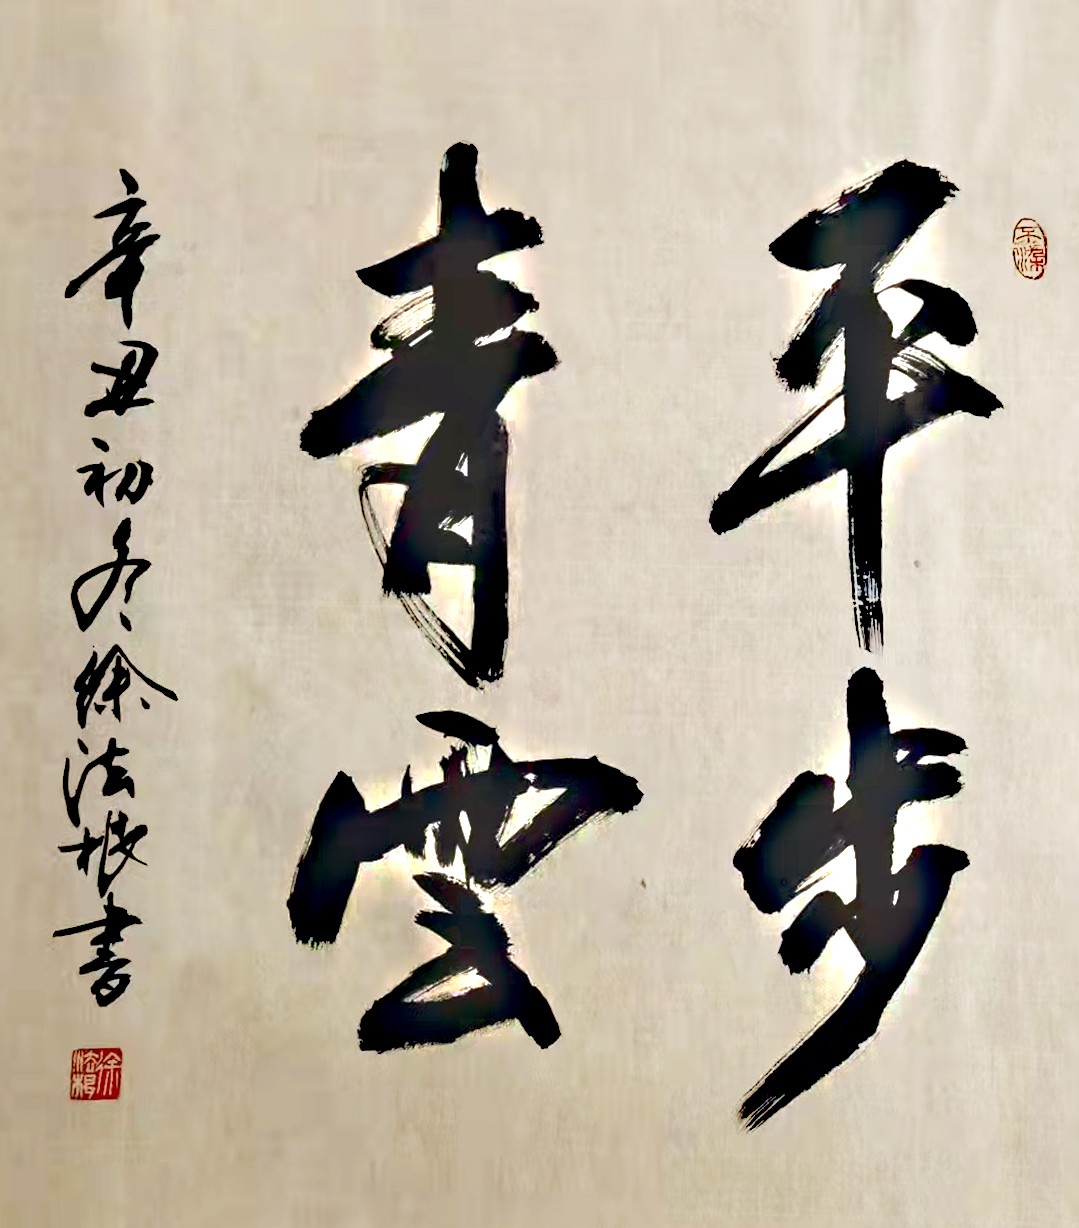 平步
青雲
辛丑初冬徐法根書
徐法根